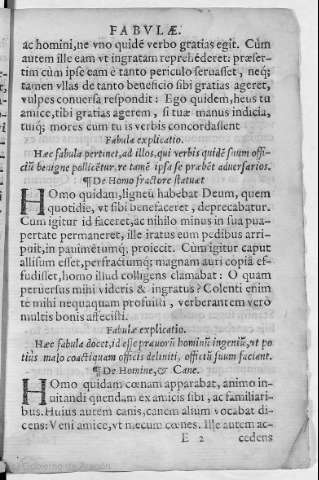 FABVLÆ.
ac homini, ne vno quidē verbo gratias egit. Cùm
autem ille eam vt ingratam reprehēderet: præser-
tim cùm ipse eam è tanto periculo seruasset, neq;
tamen vllas de tanto beneficio sibi gratias ageret,
vulpes conuersa respondit: Ego quidem, heus tu
amice, tibi gratias agerem, si tuæ manus indicia,
tuiq; mores cum tuis verbis concordassent
Fabulæ explicatio.
Hæc fabula pertinet, ad illos, qui verbis quidē suum offi-
ciū benigne pollicētur, re tamē ipsa se præbēt aduersarios.
¶ De Homo fractore statuæ.
HOmo quidam, ligneū habebat Deum, quem
quotidie, vt sibi benefaceret, deprecabatur.
Cum igitur id faceret, ac nihilo minus in sua pau-
pertate permaneret, ille iratus eum pedibus arri-
puit, in pauimētumq; proiecit. Cùm igitur caput
allisum esset, perfractumq; magnam auri copiā ef-
fudisset, homo illud colligens clamabat: O quam
peruersus mihi videris & ingratus? Colenti enim
te mihi nequaquam profuisti, verberantem vero
multis bonis affecisti.
Fabulæ explicatio.
Hæc fabula docet, id esse prauorū hominū ingeniū, vt po-
tiùs malo coacti quam officijs deliniti, officiū suum faciant.
¶ De Homine, & Cane.
HOmo quidam cœnam apparabat, animo in-
uitandi quendam ex amicis sibi, ac familiari-
bus. Huius autem canis, canem alium vocabat di-
cens: Veni amice, vt mecum cœnes. Ille autem ac-
E 2 cedens